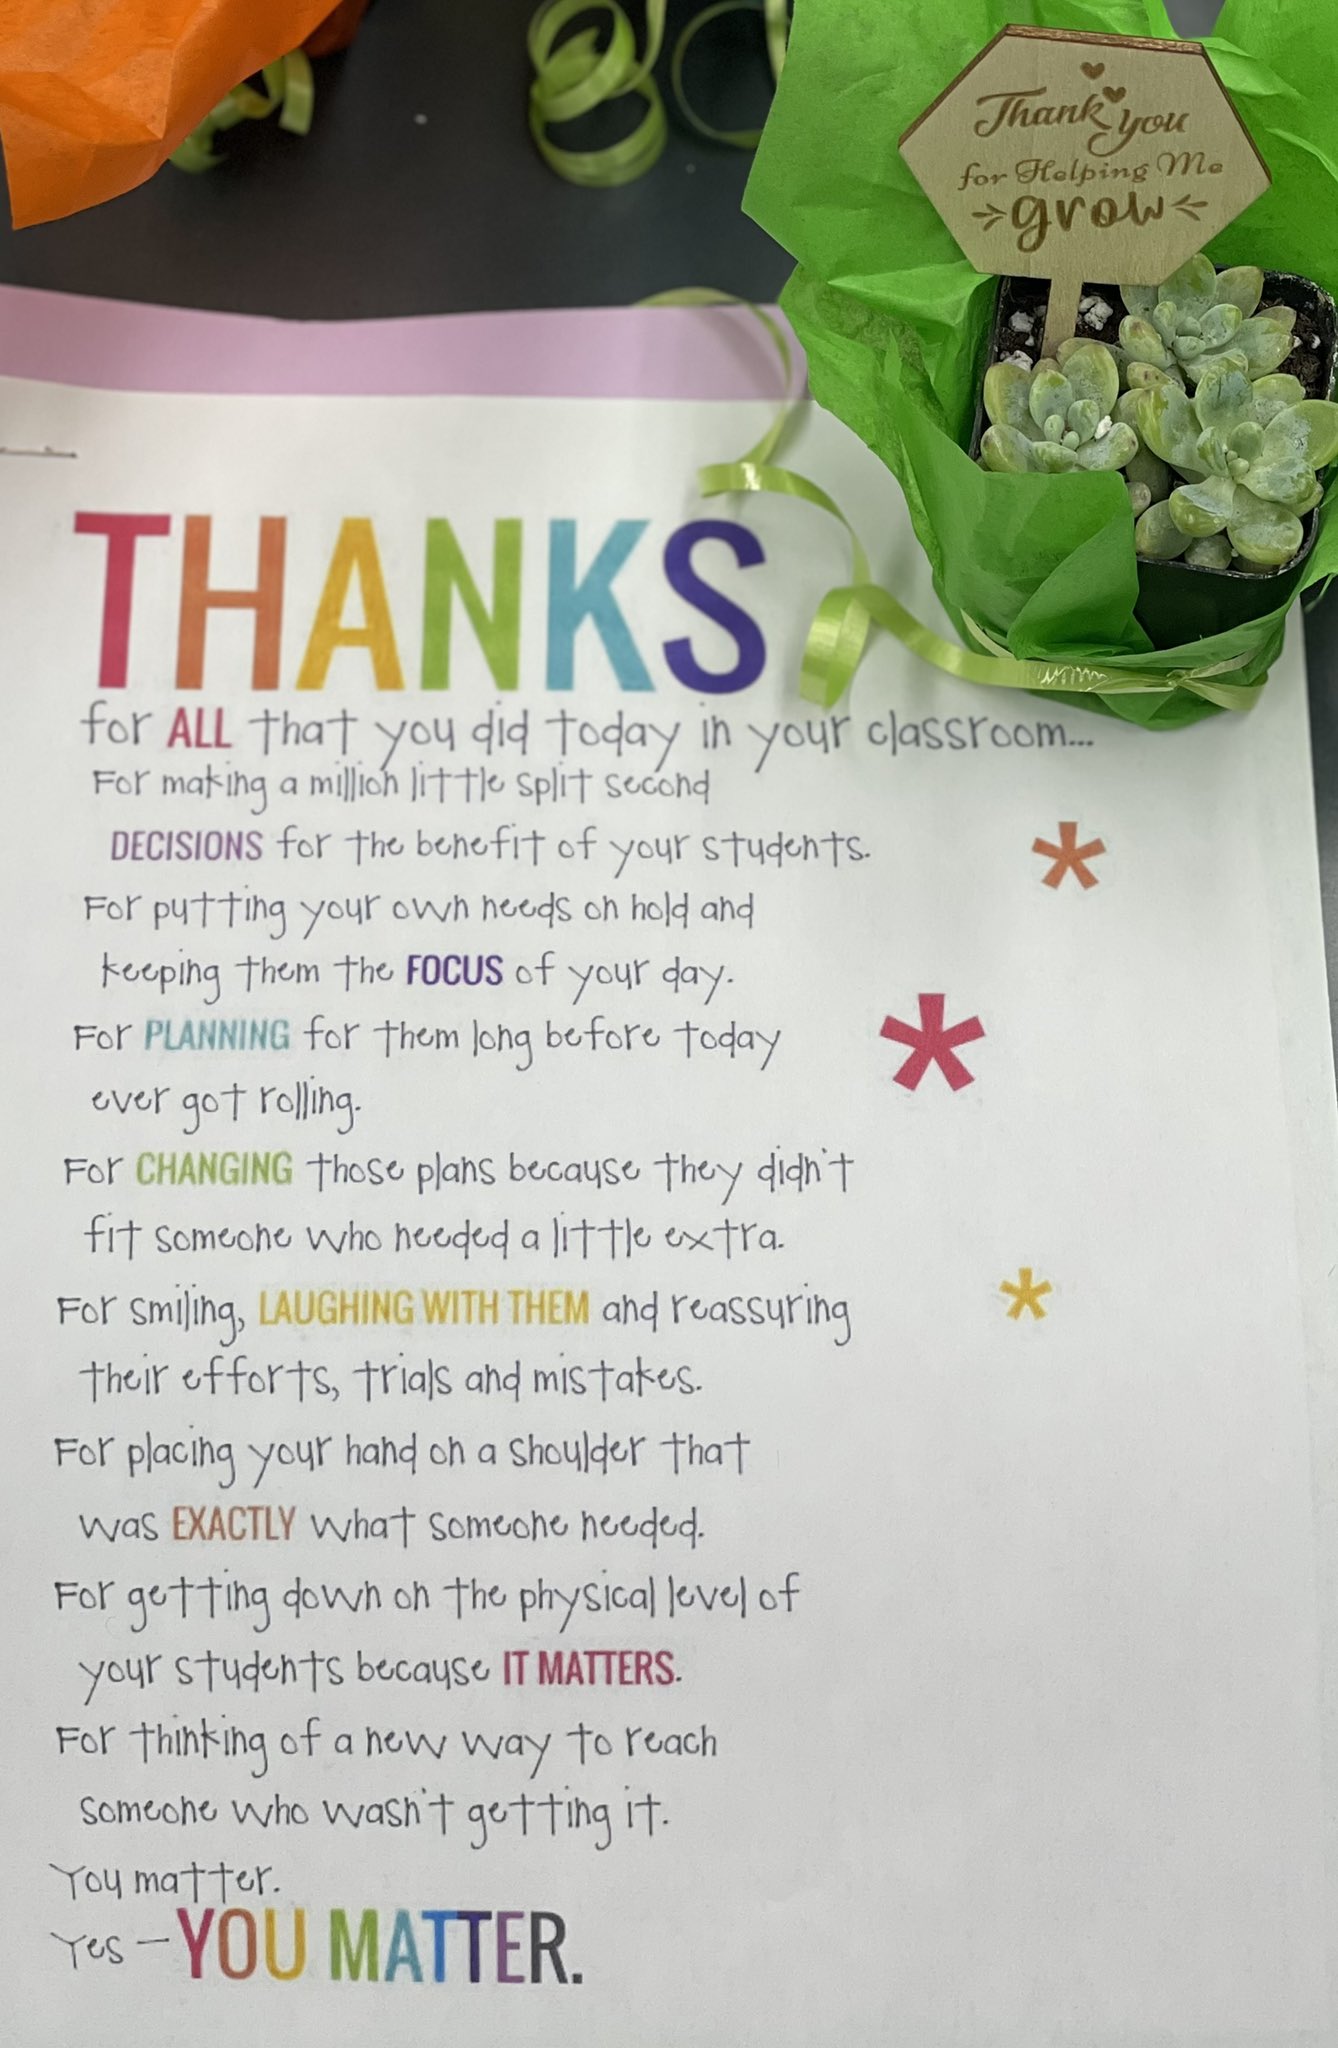 Thank you
for Helping Me
grow
THANKS
for ALL that you did today in your classroom...
For making a million little split second
DECISIONS for the benefit of your students.
For putting your own needs on hold and
keeping them the FOCUS of your day.
For PLANNING for them long before today
ever got rolling.
For CHANGING those plans because they didn't
fit someone who needed a little extra.
For smiling, LAUGHING WITH THEM and reassuring
their efforts, trials and mistakes.
For placing your hand on a shoulder that
was EXACTLY what someone needed.
For getting down on the physical level of
your students because IT MATTERS.
For thinking of a new way to reach
someone who wasn't getting it.
You matter.
Yes – YOU MATTER.